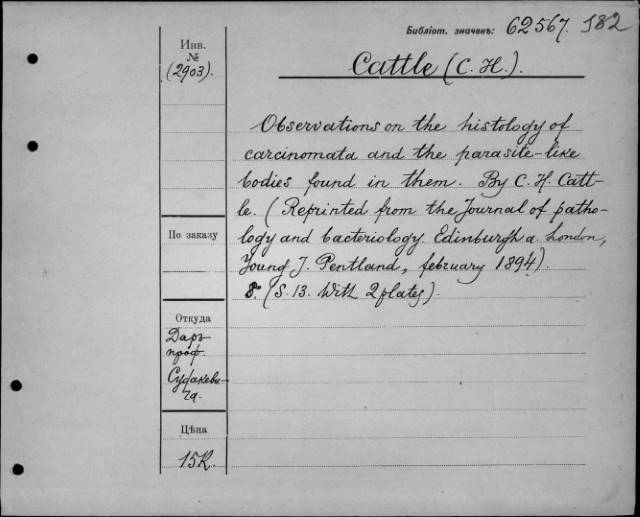 Библіот. значекъ: 62567. 182
Инв.
№
(2903).
Cattle (C. H.).
Observations on the histology of
carcinomata and the parasite-like
bodies found in them. By C. H. Catt-
le. (Reprinted from the Journal of patho-
logy and bacteriology. Edinburgh a. London,
Young J. Pentland, february 1894).
8. (S. 13. With 2 plates).
По заказу
Откуда
Даръ
проф.
Судакеви-
ча.
Цѣна
15К.